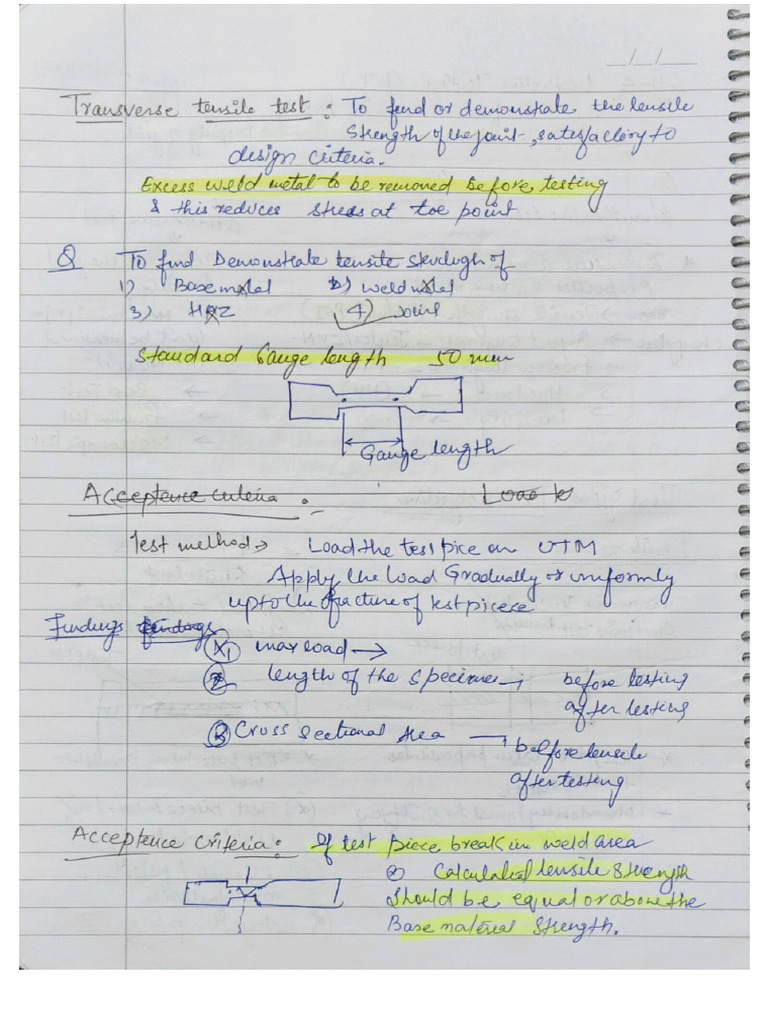 Transverse tensile test : To find or demonstrate the tensile
Strength of the joint, satisfactory to
design criteria.
Excess weld metal to be removed before testing
& this reduces stress at toe point
Q To find Demonstrate tensile strength of
1) Base metal 2) weld metal
3) HAZ 4) Joint
Standard Gauge length 50 mm
Gauge length
Acceptence criteria : Load
Test method → Load the test pice on UTM
Apply the load Gradually or uniformly
upto the fracture of test picece
Findings findings
1 max load →
2 length of the specimen → before testing
after testing
3 Cross sectional Area → before tensile
after testing
Acceptence Criteria : If test piece break in weld area
Calculated tensile strength
Should be equal or above the
Base material Strength.